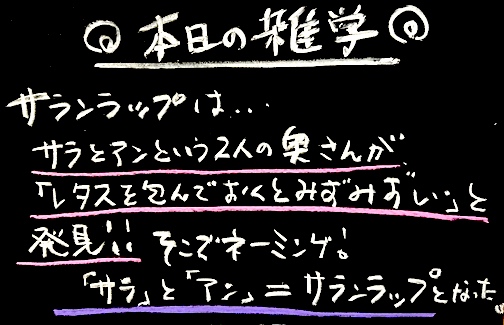 本日の雑学
サランラップは...
サラとアンという2人の奥さんが
「レタスを包んでおくとみずみずしい」と
発見!! そこでネーミング!
「サラ」と「アン」=サランラップとなった。